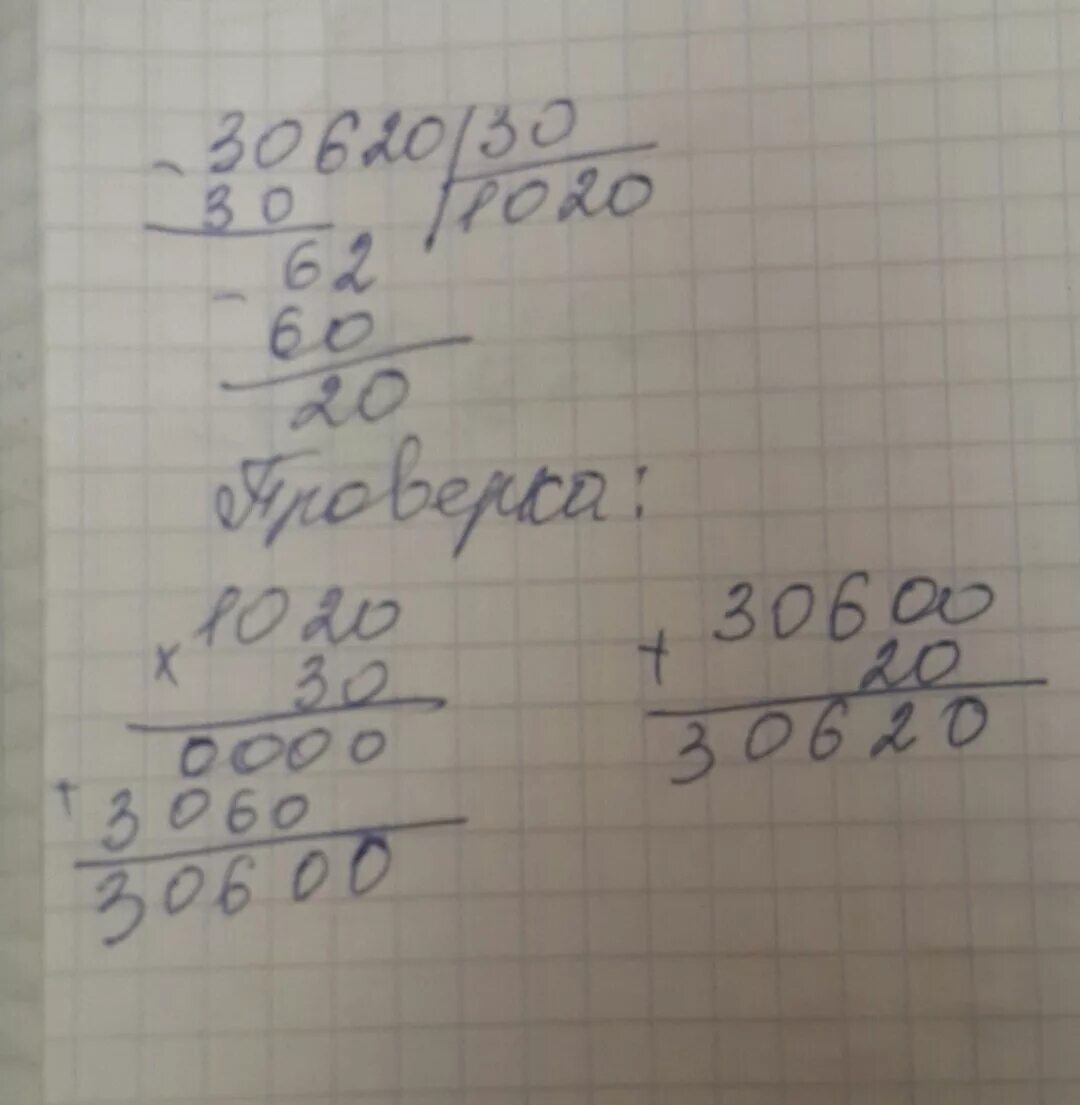 - 30620 | 30
30 | 1020
- 62
60
20
Проверка:
× 1020
30
0000
+ 3060
30600
+ 30600
20
30620